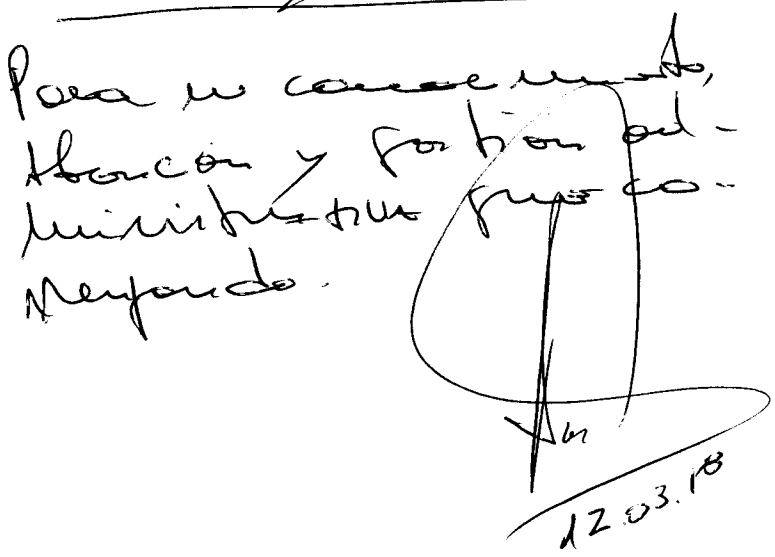 Para su conocimiento,
Atención y gestión ad-
ministrativa que co-
rresponda.
12.03.18